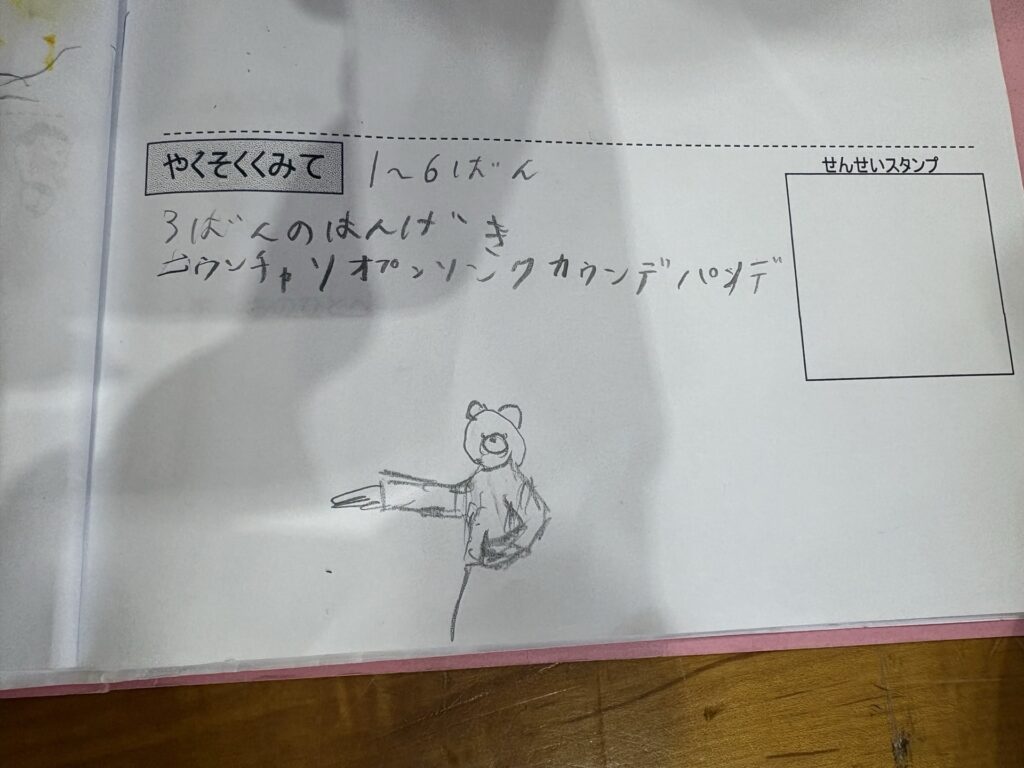 やくそくくみて 1〜6ばん
せんせいスタンプ
3ばんのはんげき
ニウンチャソオプンソンクカウンデパンデ